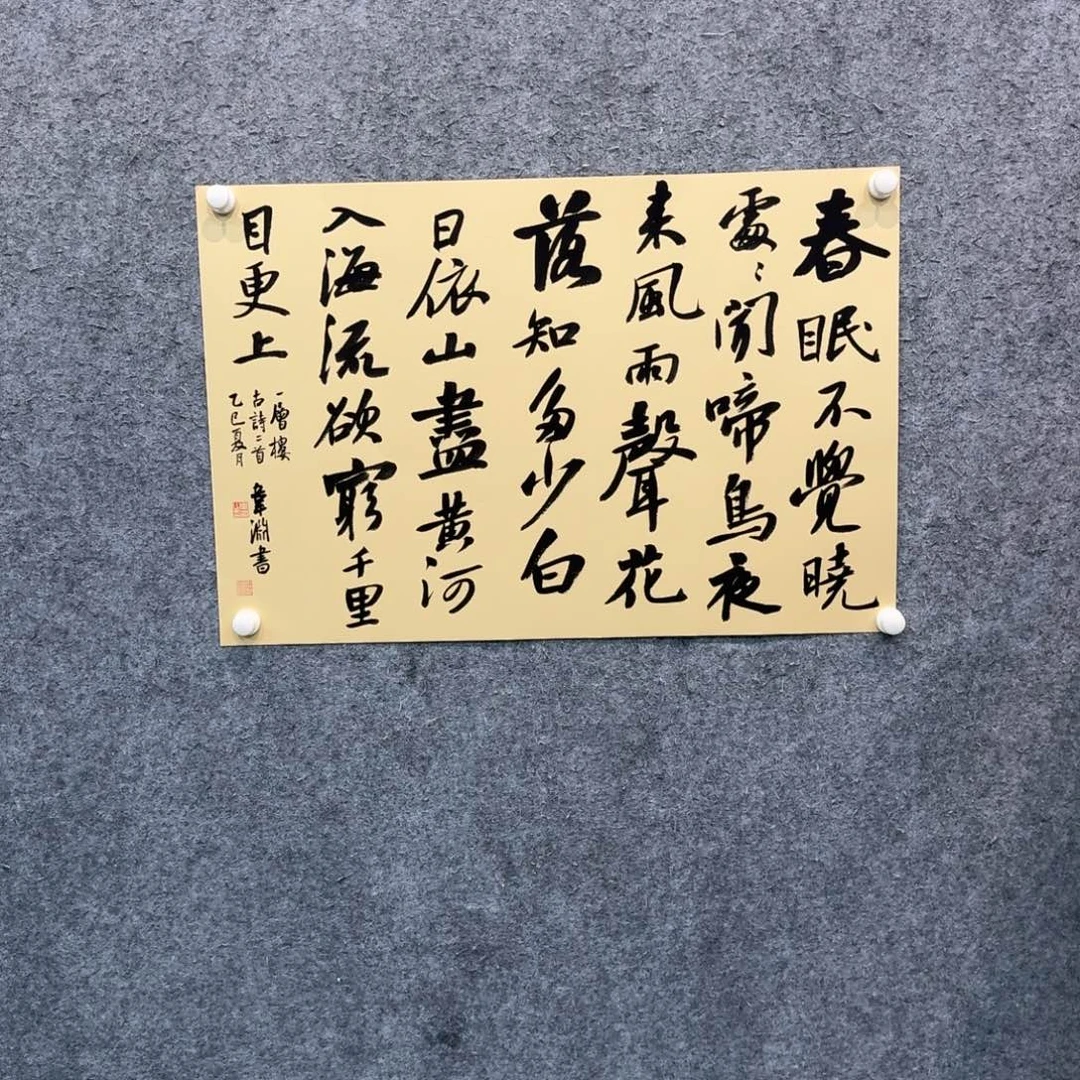 春眠不覺曉
處：聞啼鳥夜
来風雨聲花
落知多少白
日依山盡黄河
入海流欲窮千里
目更上
一層樓
古詩二首
乙巳夏月
韋淵書